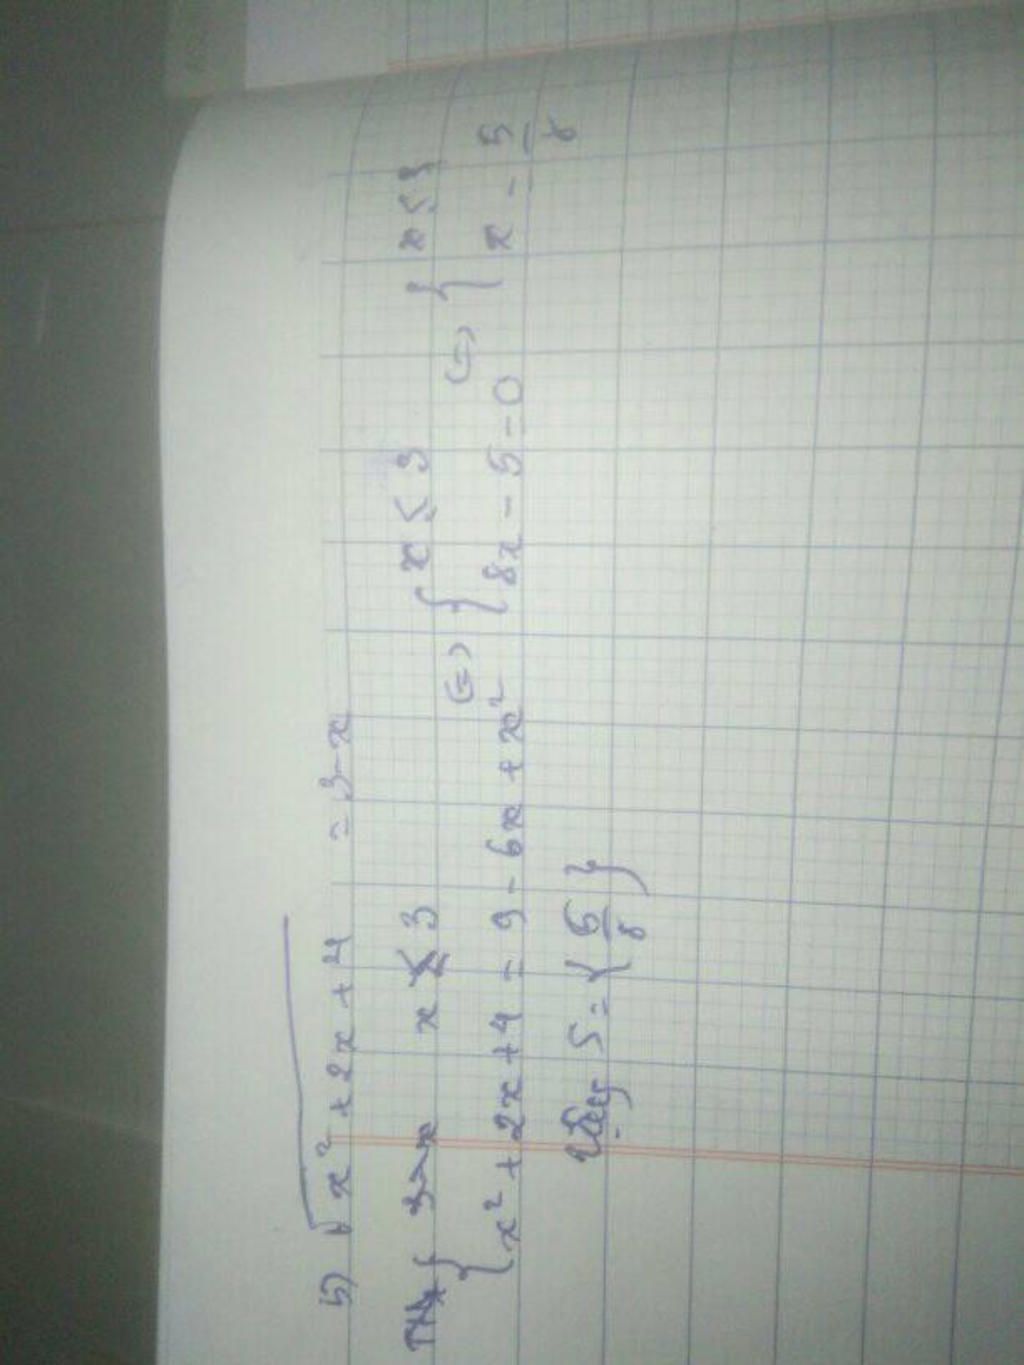 5) √x² + 2x + 4 = 3-x
{ x ≤ 3 (=) { x ≤ 3 (=) { x ≤ 3
x² + 2x + 4 = 9 - 6x + x² 8x - 5 = 0 x = 5/8
Vậy S = { 5/8 }